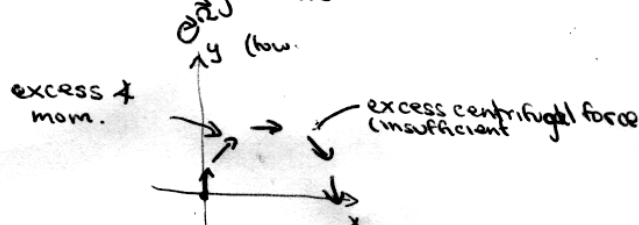 Ω
y (tow.
excess ∡
mom.
excess centrifugal force
(insufficient
x